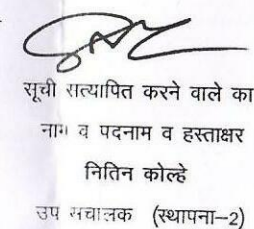 सूची सत्यापित करने वाले का
नाम व पदनाम व हस्ताक्षर
नितिन कोल्हे
उप संचालक (स्थापना-2)